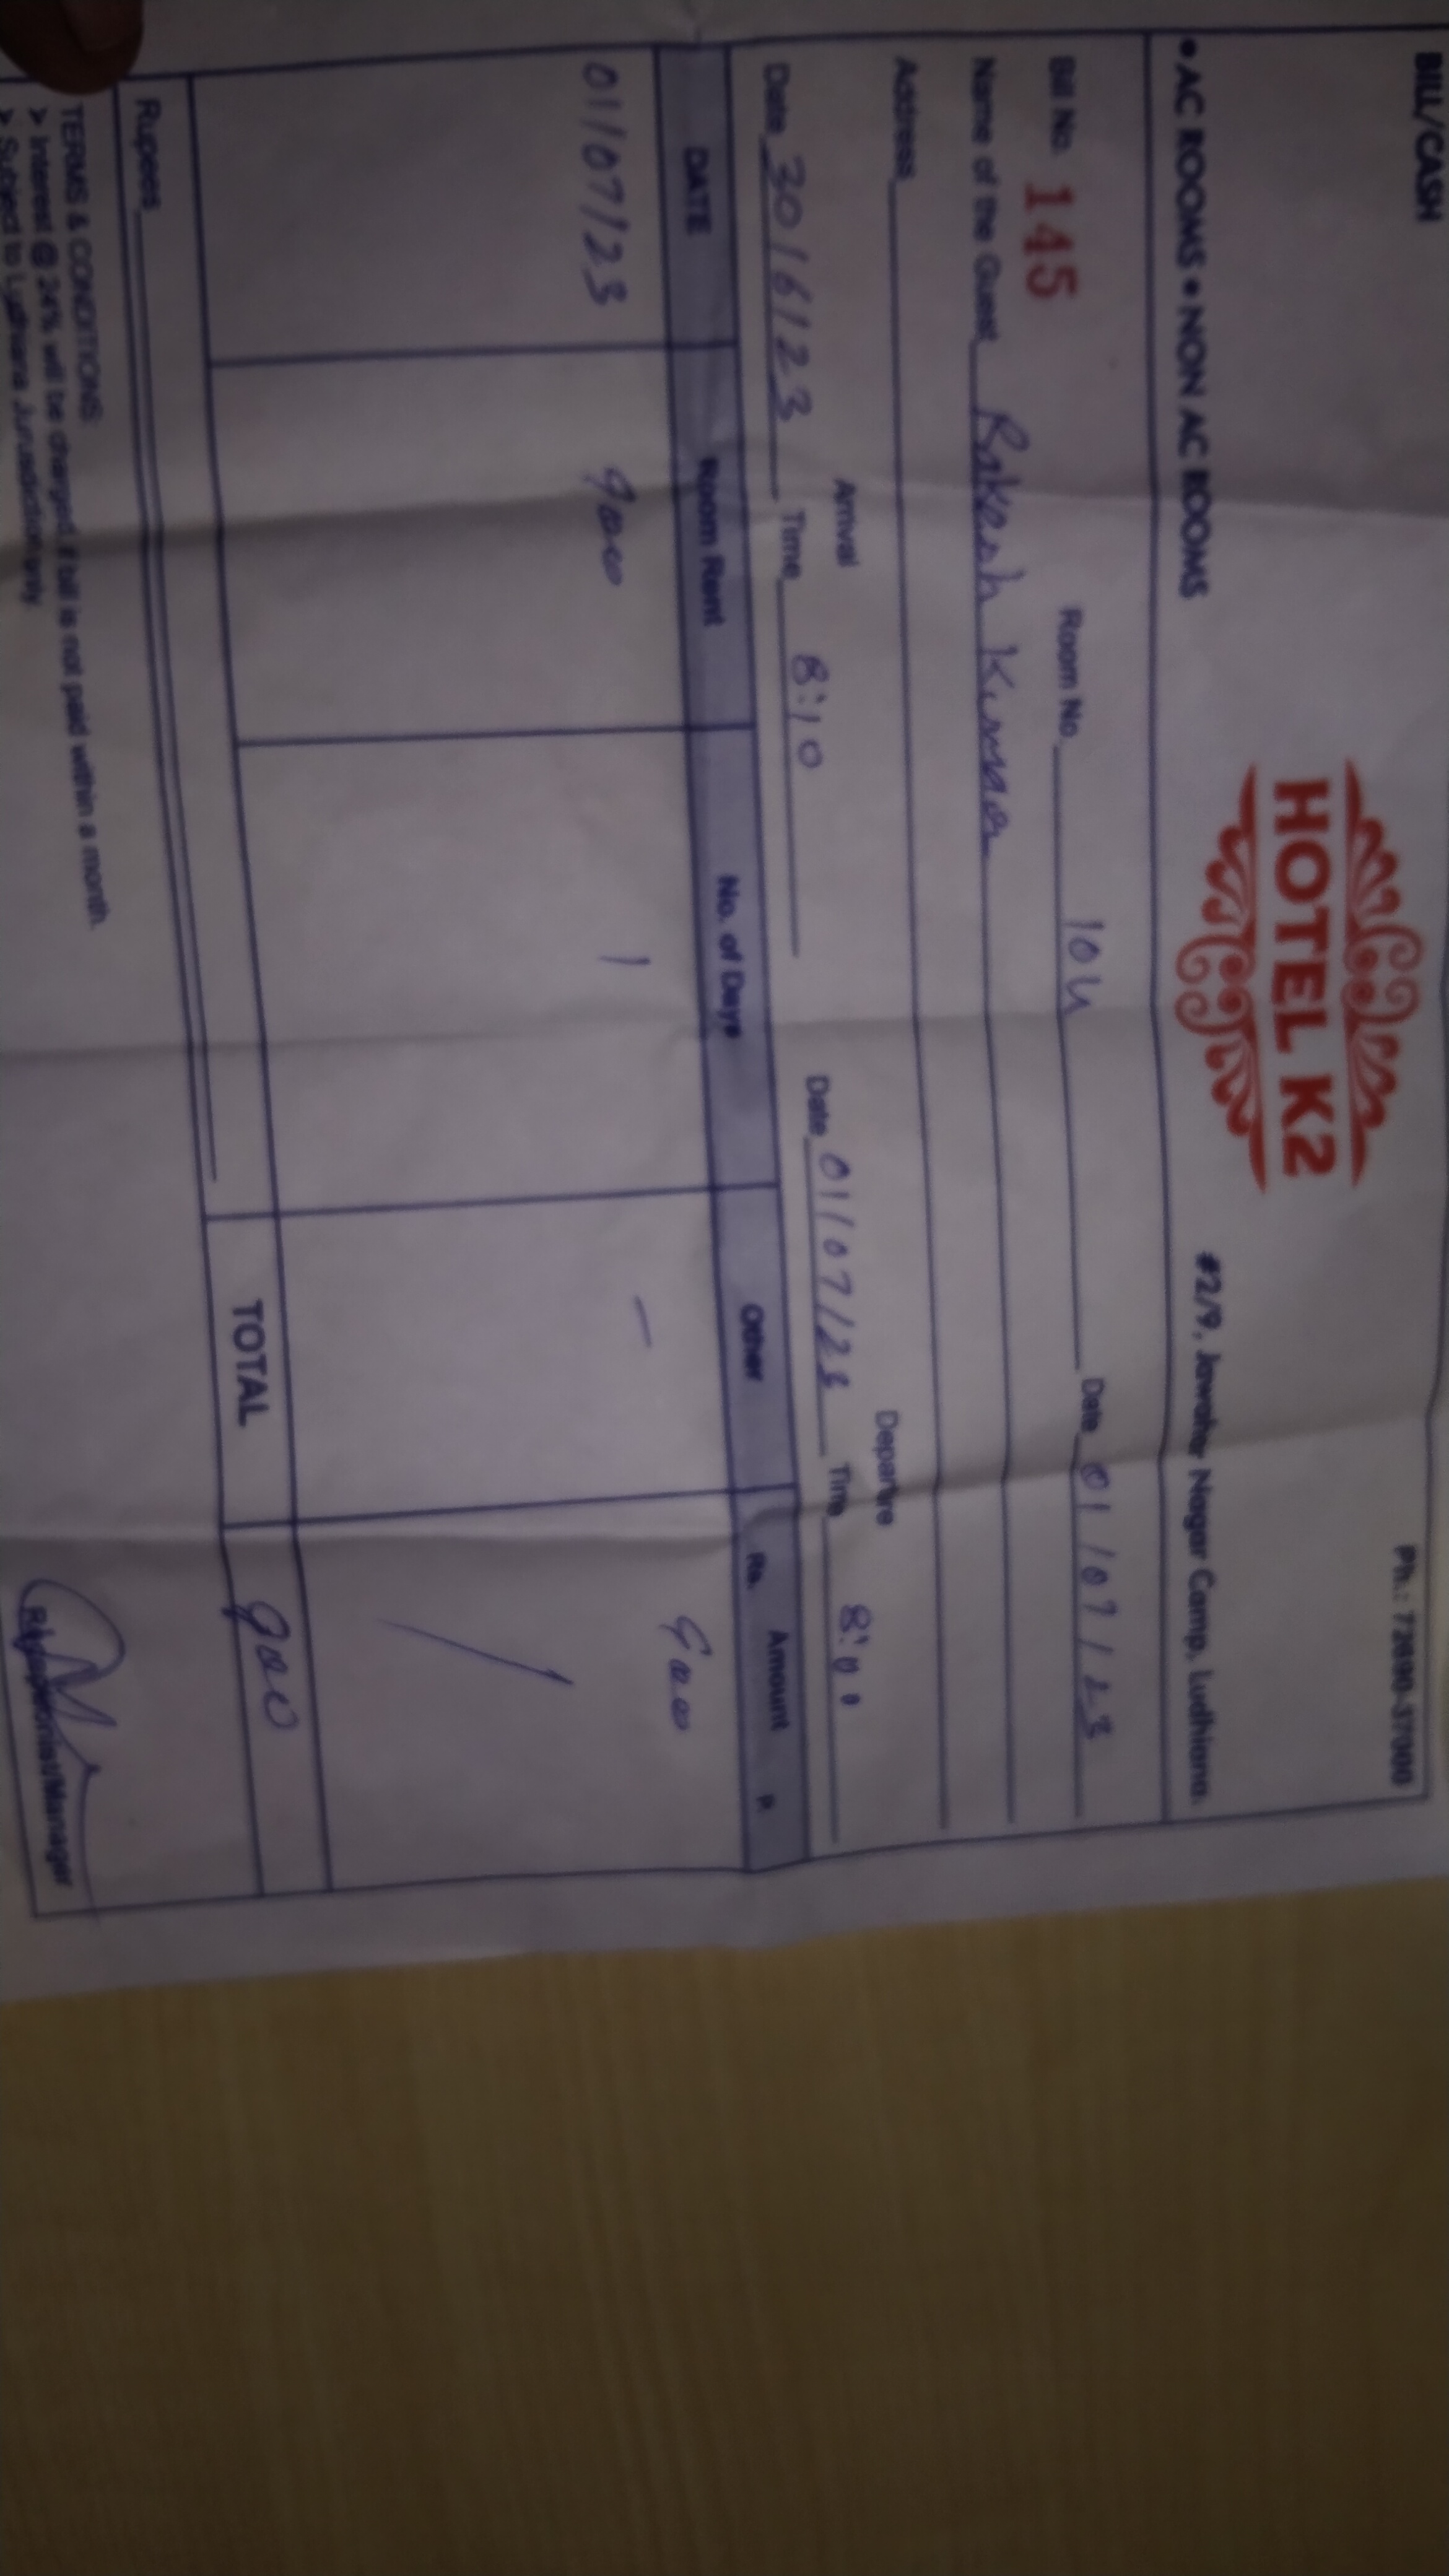 BILL/CASH
Ph.: 72690-37000
HOTEL K2
• AC ROOMS • NON AC ROOMS
#2/9, Jawahar Nagar Camp, Ludhiana.
Bill No. 145 Room No. 104 Date 01/07/23
Name of the Guest Rakesh Kumar
Address
Arrival Departure
Date 30/6/23 Time 8:10 Date 01/07/23 Time 8:00
DATE Room Rent No. of Days Other Amount
Rs. P.
01/07/23 900 1 — 900
TOTAL 900
Rupees
TERMS & CONDITIONS:
> Interest @ 24% will be charged if bill is not paid within a month.
> Subject to Ludhiana Jurisdiction only.
Receptionist/Manager